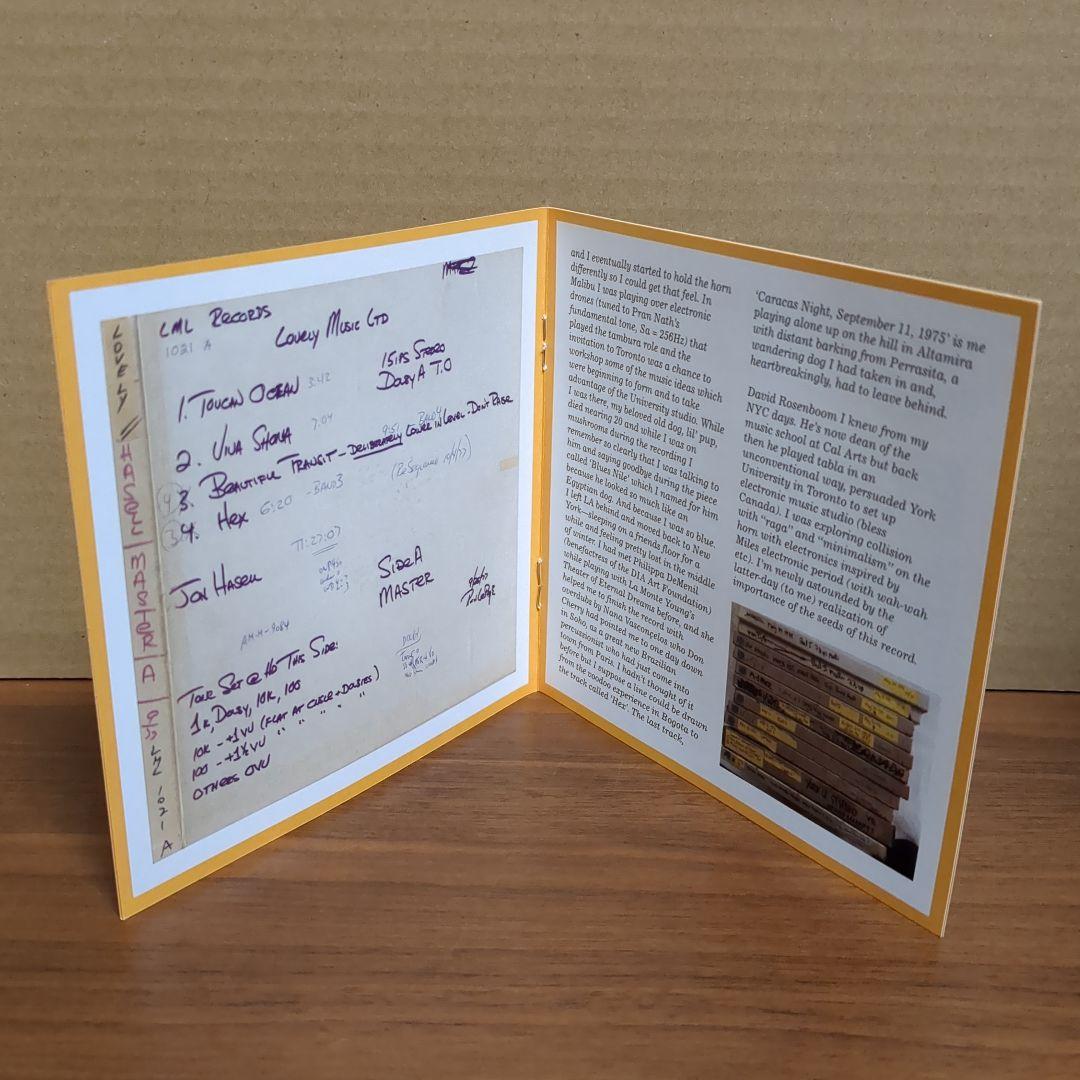 LML RECORDS
LOVELY MUSIC LTD
1021 A
15IPS STEREO
DOLBY A T.O
1. TOUCAN OCEAN 3:42
2. VIVA SHONA 7:04
3. BEAUTIFUL TRANSIT - DELIBERATELY LOWER IN LEVEL - DON'T RAISE
4. HEX 6:20 - BAND 3
JON HASSELL
SIDE A
MASTER
AM-H-9084
TONE SET @ HD THIS SIDE:
1K, DOLBY, 10K, 100
10K - +1VU (FLAT AT CUBE + DOLBIES)
100 - +1½VU " " " "
OTHERS OVU
LOVELY // HASSEL MASTER A
LML 1021 A
and I eventually started to hold the horn
differently so I could get that feel. In
Malibu I was playing over electronic
drones (tuned to Pran Nath's
fundamental tone, Sa = 256Hz) that
played the tambura role and the
invitation to Toronto was a chance to
workshop some of the music ideas which
were beginning to form and to take
advantage of the University studio. While
I was there, my beloved old dog, lil' pup,
died nearing 20 and while I was on
mushrooms during the recording I
remember so clearly that I was talking to
him and saying goodbye during the piece
called 'Blues Nile' which I named for him
because he looked so much like an
Egyptian dog. And because I was so blue.
I left LA behind and moved back to New
York—sleeping on a friends floor for a
while and feeling pretty lost in the middle
of winter. I had met Philippa DeMenil
(benefactress of the DIA Art Foundation)
while playing with La Monte Young's
Theater of Eternal Dreams before, and she
helped me to finish the record with
overdubs by Nana Vasconçelos who Don
Cherry had pointed me to one day down
in Soho, as a great new Brazilian
percussionist who had just come into
town from Paris. I hadn't thought of it
before but I suppose a line could be drawn
from the voodoo experience in Bogota to
the track called 'Hex'. The last track,
'Caracas Night, September 11, 1975' is me
playing alone up on the hill in Altamira
with distant barking from Perrasita, a
wandering dog I had taken in and,
heartbreakingly, had to leave behind.
David Rosenboom I knew from my
NYC days. He's now dean of the
music school at Cal Arts but back
then he played tabla in an
unconventional way, persuaded York
University in Toronto to set up
electronic music studio (bless
Canada). I was exploring collision
with "raga" and "minimalism" on the
horn with electronics inspired by
Miles electronic period (with wah-wah
etc). I'm newly astounded by the
latter-day (to me) realization of
importance of the seeds of this record.